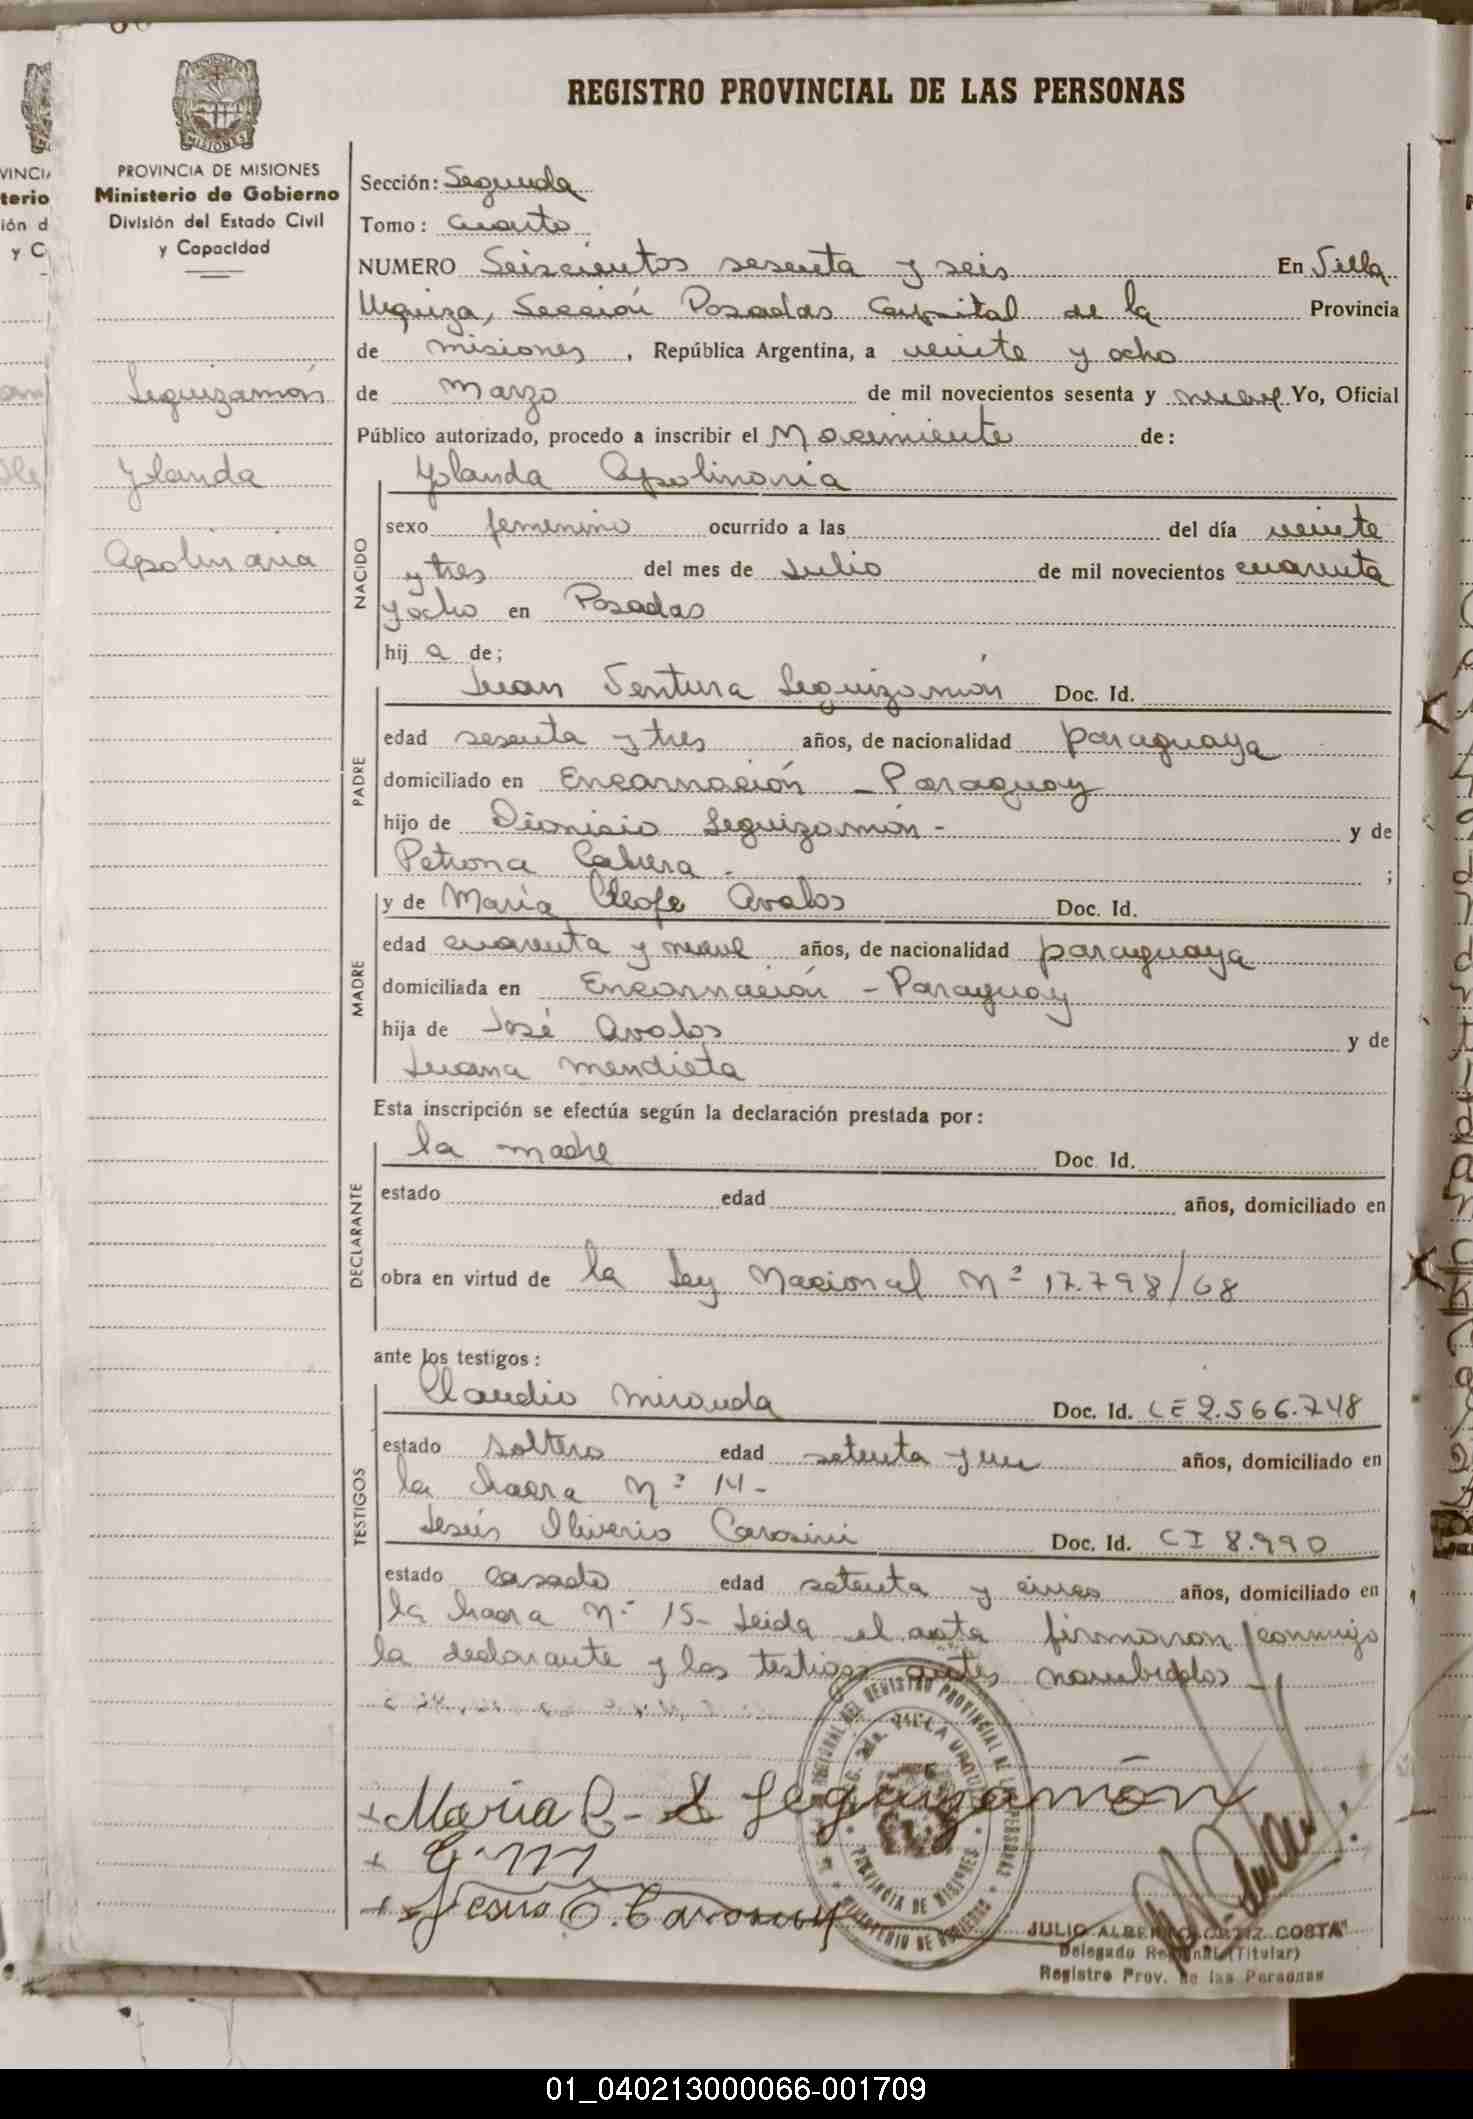 REGISTRO PROVINCIAL DE LAS PERSONAS
PROVINCIA DE MISIONES
Ministerio de Gobierno
División del Estado Civil
y Capacidad
Leguizamón
Yolanda
Apolinaria
Sección: Segunda
Tomo: Cuarto
NUMERO Seiscientos sesenta y seis En Villa
Urquiza, Sección Posadas Capital de la Provincia
de misiones, República Argentina, a veinte y ocho
de Marzo de mil novecientos sesenta y nueve Yo, Oficial
Público autorizado, procedo a inscribir el Nacimiento de:
Yolanda Apolinaria
NACIDO
sexo femenino ocurrido a las del día veinte
y tres del mes de Julio de mil novecientos cuarenta
y ocho en Posadas
hij a de;
PADRE
Juan Ventura Leguizamón Doc. Id.
edad sesenta y tres años, de nacionalidad paraguaya
domiciliado en Encarnación - Paraguay
hijo de Dionisio Leguizamón - y de
Petrona Cabrera - ;
MADRE
y de María Cleofe Avalos Doc. Id.
edad cuarenta y nueve años, de nacionalidad paraguaya
domiciliada en Encarnación - Paraguay
hija de José Avalos y de
Juana Mendieta
Esta inscripción se efectúa según la declaración prestada por:
DECLARANTE
la madre Doc. Id.
estado edad años, domiciliado en
obra en virtud de la Ley Nacional Nº 17.798/68
ante los testigos:
TESTIGOS
Claudio Miranda Doc. Id. CE 2.566.748
estado soltero edad setenta y un años, domiciliado en
la chacra Nº 14-
Jesús Oliverio Carosini Doc. Id. CI 8.990
estado casado edad setenta y cinco años, domiciliado en
la chacra Nº 15- Leida el acta firmaron conmigo
la declarante y los testigos antes nombrados -
+ María C- Leguizamón
+
+ Jesus O. Carosini
REGISTRO PROVINCIAL DE LAS PERSONAS
2da. VILLA URQUIZA
PROVINCIA DE MISIONES
MINISTERIO DE GOBIERNO
JULIO ALBERTO ORTIZ COSTA
Delegado Regional (Titular)
Registro Prov. de las Personas
01_040213000066-001709